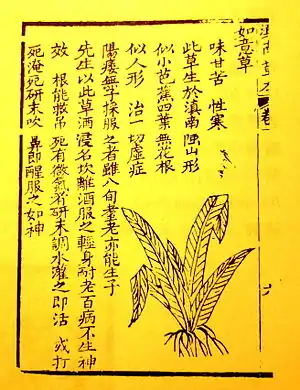 滇南草本 卷
如意草
味甘苦 性寒
此草生於滇南隅山形
似小芭蕉四葉無花根
似人形 治一切虛症
陽痿無子採服之者雖八旬耄老亦能生子
先生以此草酒浸名坎離酒服之輕身耐老百病不生神
效 根能救吊死有微氣者研末調水灌之即活 或打
死淹死研末吹 鼻即醒服之如神
六